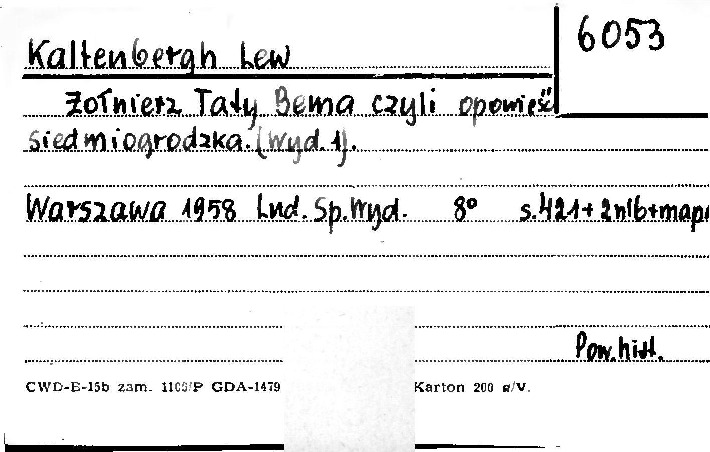 Kaltenbergh Lew
6053
Żołnierz Taty Bema czyli opowieść
siedmiogrodzka. (Wyd. 1).
Warszawa 1958 Lud. Sp. Wyd. 8° s. 421 + 2 nlb + mapa
Pow. hist.
CWD-E-15b zam. 1105/P GDA-1479 Karton 200 g/V.